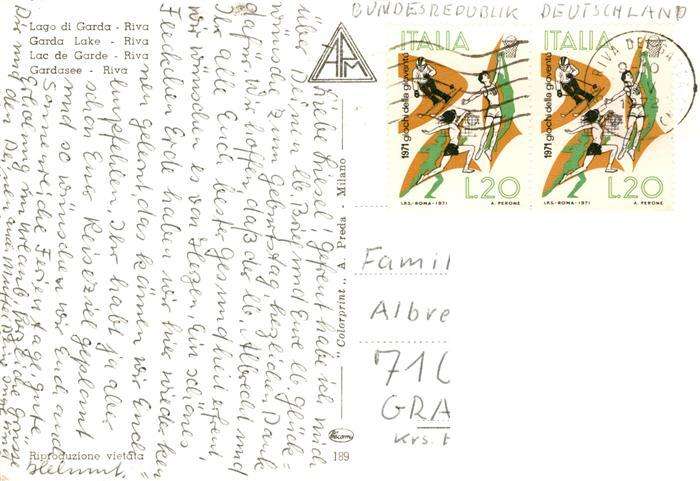 Lago di Garda - Riva
Garda Lake - Riva
Lac de Garde - Riva
Gardasee - Riva
Riproduzione vietata
"Colorprint" A. Preda Milano
189
BUNDESREPUBLIK DEUTSCHLAND
ITALIA
1971 giochi della gioventù
L.20
I.P.S.-ROMA-1971
A. PERONE
ITALIA
1971 giochi della gioventù
L.20
I.P.S.-ROMA-1971
A. PERONE
RIVA DEL
Famil
Albre
710
GRA
Krs.
Gefreut habe ich mich
über Deinen lb. Brief und Eure lb. Glück=
wünsche zum Geburtstag herzlichen Dank
dafür. Wir hoffen, daß der lb. Albrecht und
Ihr alle Euch bester Gesundheit erfreut
wir wünschen es von Herzen. Ein schönes
Fleckchen Erde haben wir hier wieder ken=
nen gelernt das können wir Euch
empfehlen, Ihr habt ja aber
schon Eure Reiseziel geplant
und so wünschen wir Euch auch
Sonne in die Ferientage, gute
Erholung im Urlaub herzliche Grüsse
Helmut.